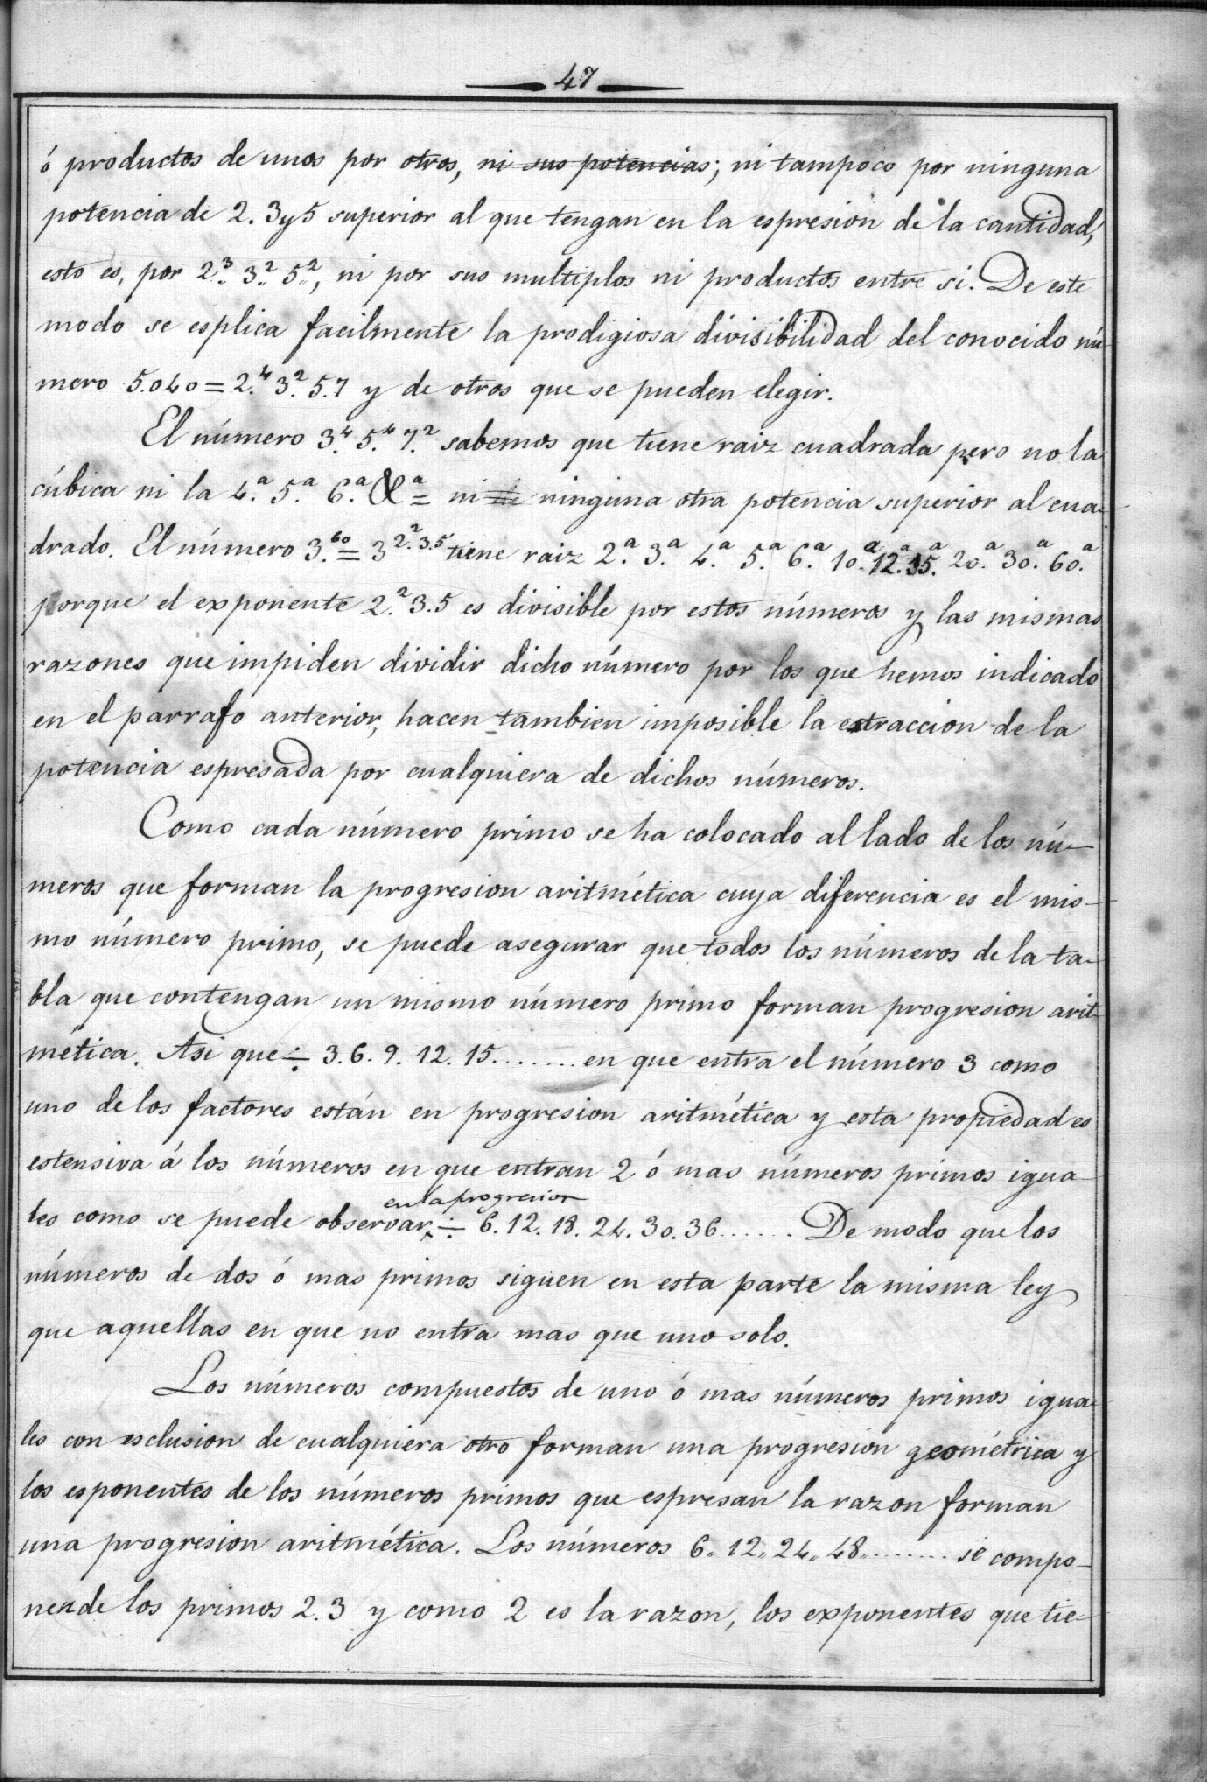 47
ó productos de unos por otros, ni sus potencias; ni tampoco por ninguna
potencia de 2. 3 y 5 superior al que tengan en la espresion de la cantidad,
esto es, por 2.³ 3.² 5.², ni por sus multiplos ni productos entre si. De este
modo se esplica facilmente la prodigiosa divisibilidad del conocido nú-
mero 5.040 = 2.⁴ 3.² 5.7 y de otros que se pueden elegir.
El número 3.⁴ 5.⁴ 7.² sabemos que tiene raiz cuadrada pero no la
cúbica ni la 4.ª 5.ª 6.ª &ª ni ninguna otra potencia superior al cua-
drado. El número 3.⁶⁰ = 3².².³.⁵ tiene raiz 2.ª 3.ª 4.ª 5.ª 6.ª 10.ª 12.ª 15.ª 20.ª 30.ª 60.ª
porque el exponente 2.² 3.5 es divisible por estos números y las mismas
razones que impiden dividir dicho número por los que hemos indicado
en el parrafo anterior, hacen tambien imposible la estraccion de la
potencia espresada por cualquiera de dichos números.
Como cada número primo se ha colocado al lado de los nú-
meros que forman la progresion aritmética cuya diferencia es el mis-
mo número primo, se puede asegurar que todos los números de la ta-
bla que contengan un mismo número primo forman progresion arit-
mética. Asi que ÷ 3. 6. 9. 12. 15........ en que entra el número 3 como
uno de los factores están en progresion aritmética y esta propiedad es
estensiva á los números en que entran 2 ó mas números primos igua-
en la progresion
les como se puede observar ÷ 6. 12. 18. 24. 30. 36....... De modo que los
números de dos ó mas primos siguen en esta parte la misma ley
que aquellas en que no entra mas que uno solo.
Los números compuestos de uno ó mas números primos igua-
les con esclusion de cualquiera otro forman una progresion geométrica y
los esponentes de los números primos que espresan la razon forman
una progresion aritmética. Los números 6. 12. 24. 48......... se compo-
nen de los primos 2. 3 y como 2 es la razon, los exponentes que tie-